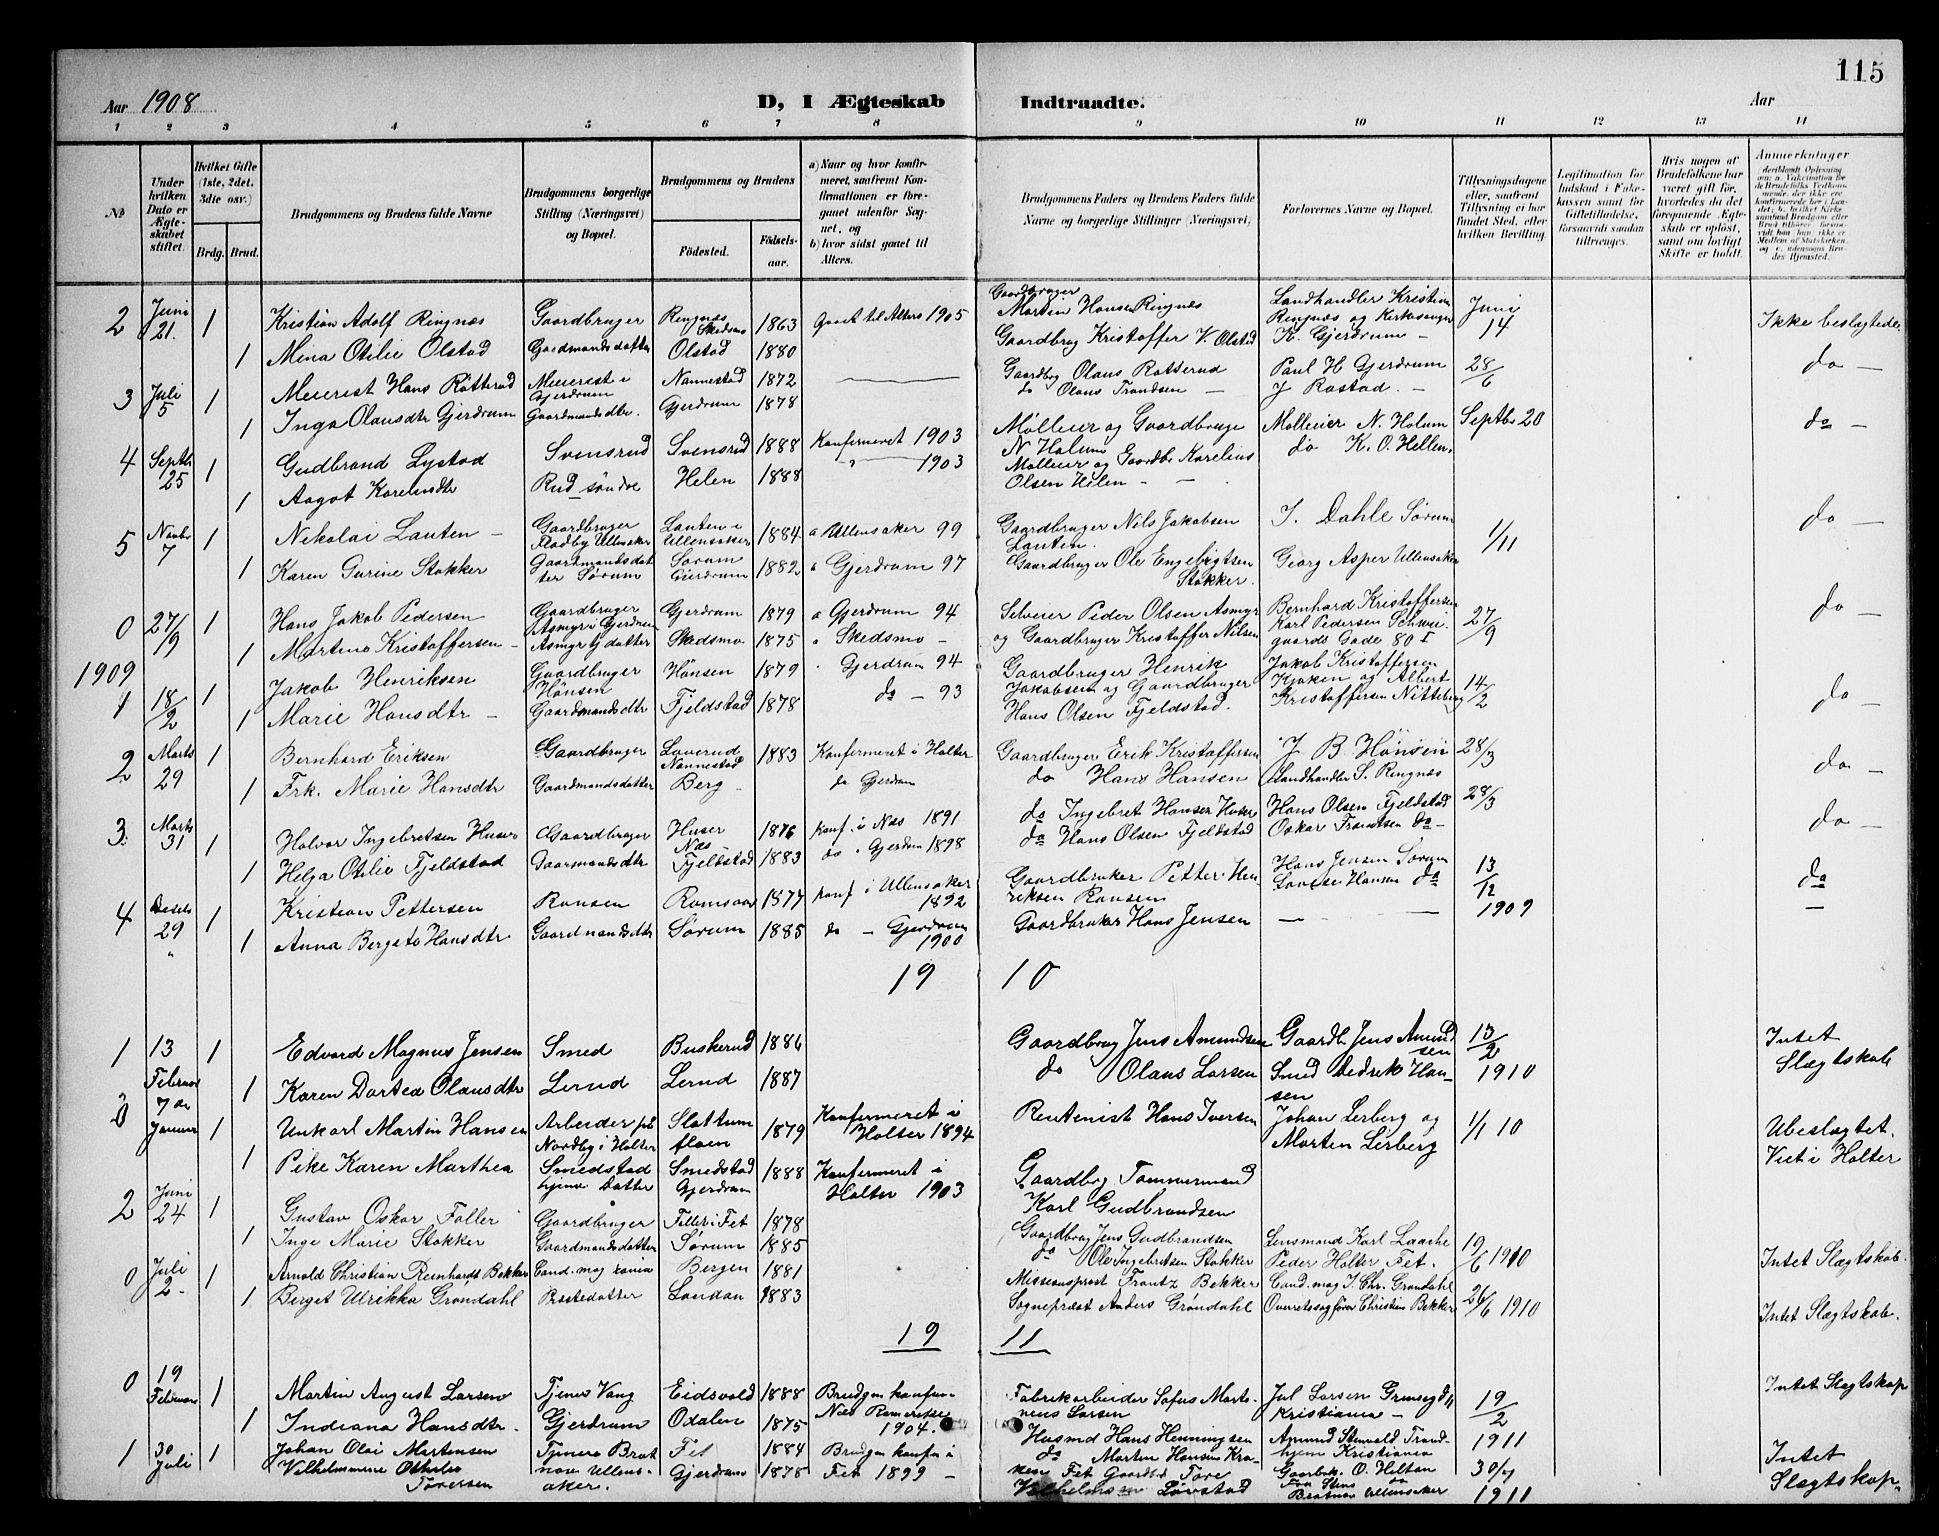 115
Aar 1908
D, I Ægteskab Indtraadte.
Aar
1 2 3 4 5 6 7 8 9 10 11 12 13 14
No
Under hvilken Dato er Ægteskabet stiftet.
Hvilket Gifte (1ste, 2det, 3die osv.)
Brdg. Brud.
Brudgommens og Brudens fulde Navne
Brudgommens borgerlige Stilling (Næringsvei) og Bopæl.
Brudgommens og Brudens
Fødested.
Fødselsaar.
a) Naar og hvor konfirmeret, saafremt Konfirmationen er foregaaet udenfor Sognet, og
b) hvor sidst gaaet til Alters.
Brudgommens Faders og Brudens Faders fulde Navne og borgerlige Stillinger (Næringsvei)
Forlovernes Navne og Bopæl.
Tillysningsdagene eller, saafremt Tillysning ei har fundet Sted, efter hvilken Bevilling.
Legitimation for Indskud i Enkekassen samt for Giftetilladelse, forsaavidt saadan tiltrænges.
Hvis nogen af Brudefolkene har været gift, hvorledes da det foregaaende Ægteskab er opløst, samt om lovligt Skifte er holdt.
Anmerkninger
2 Juni 21. 1 Kristian Adolf Ringnæs Gaardbruger Ringnæs Skedsmo 1863 Gaaet til Alters 1905 Gaardbruger Martin Hansen Ringnæs Landhandler Kristian Ringnæs og Kirkesanger Juni 14 Ikke beslægtede
1 Mina Otilie Olstad Gaardmandsdatter Olstad 1880 Gaardbrug Kristoffer V. Olstad K. Gjerdrum —
3 Juli 5 1 Meierest Hans Rotterud Meierest i Gjerdrum Nannestad 1872 Gaardbg Olaus Rotterud Paul H Gjerdrum 28/6 do —
1 Inga Olausdtr Gjerdrum Gaardmandsdtr. Gjerdrum 1878 do Olaus Trondsen — J Rostad. —
4 Septbr 25 1 Gudbrand Lystad Svensrud Svensrud 1888 Konfermeret 1903 Mølleier og Gaardbruge N Holum Molleier N. Holum Septbr 20 do —
1 Aagot Koreliusdtr Rud søndre Helen 1888 " — 1903 Molleier og Gaardbr Korelius Olsen Helen — do K. O. Hellen.
5 Novbr 7 1 Nikolai Lauten — Gaardbruger Fladby Ullensaker Lauten i Ullensaker 1884 a Ullensaker 99 Gaardbruger Nils Jakobsen Lauten. I. Dahle Sørum 1/11 do —
1 Karen Gurine Stokker Gaardmandsdatter Sørum Sørum Gjerdrum 1882 a Gjerdrum 97 Gaardbruger Ole Engebrigtsen Stokker. Georg Asper Ullensaker
0 27/9 1 Hans Jakob Pedersen Gaardbruger Asmyr i Gjerdrum Gjerdrum 1879 a Gjerdrum 94 Selveier Peder Olsen Asmyr Bernhard Kristoffersen Karl Pedersen Schweigaards Gade 80 I 27/9 do —
1 Martine Kristoffersen — Asmyr Gdatter Skedsmo 1875 " Skedsmo — og Gaardbruger Kristoffer Nilsen
1909
1 18/2 1 Jakob Henriksen Gaardbruger Hønsen Hønsen 1879 " Gjerdrum 94 Gaardbruger Henrik Jakobsen og Gaardbruger Jakob Kristoffersen Kjoken og Albert Kristoffersen Nitteberg 14/2 do —
1 Marie Hansdtr — Gaardmandsdtr Fjeldstad 1878 do — 93 Hans Olsen Fjeldstad.
2 Marts 29 1 Bernhard Eriksen Gaardbruger Loverud Nannestad 1883 Konfermeret i Holter Gaardbruger Erik Kristoffersen J B Hønsen 28/3 do —
1 Frk. Marie Hansdtr Gaardmandsdatter Berg — do Gjerdrum do Hans Hansen Landhandler S. Ringnæs
3. Marts 31 1 Halvor Ingebretsen Huser Gaardbruger Huser Næs 1876 Konf. i Næs 1891 do Ingebret Hansen Huser Hans Olsen Fjeldstad 28/3 do —
1 Helga Otilie Fjeldstad Gaarmandsdtr Fjeldstad 1883 do " Gjerdrum 1898 do Hans Olsen Fjeldstad Oskar Frantsen do —
4 29 1 Kristian Pettersen Ronsen Romsaas 1877 Konf i Ullensaker 1892 Gaardbruker Petter Henriksen Ronsen Hans Jensen Sørum Lovise Hansen do 13/12 1909 do —
1 Anna Bergete Hansdtr Gaardmandsdtr Sørum 1885 do — Gjerdrum 1900 Gaardbruker Hans Jensen
19 10
1 13 Februar 1 Edvard Magnus Jensen Smed Buskerud 1886 Gaardbrug Jens Amundsen Gaardb. Jens Amundsen 13/2 1910 Intet Slægtskab
1 Karen Dortea Olausdtr Lerud Lerud 1887 do Olaus Larsen Smed Dedrek Hansen
0 7 de Januar 1 Unkarl Martin Hansen Arbeider på Nordby i Holter Slattum 1879 Konfermeret i Holter 1894 Rentenist Hans Iversen Johan Lerberg og Morten Lerberg 1/1 10 Ubeslægtet. Viet i Holter
1 Pike Karen Marthea Smedstad hjemv Datter Smedstad Gjerdrum 1888 Konfermeret i Holter 1903 Gaardbrg Tømmermand Karl Gudbrandsen
2 Juni 24 1 Gustav Oskar Faller Gaardbruger Faller i Fet 1878 Gaardbrug Jens Gudbrandsen Lensmand Karl Laache 19/6 1910 Intet Slægtskab.
1 Inge Marie Stokker Gaardmandsdatter Sørum 1885 do Ole Ingebretsen Stokker Peder Holter Fet.
0 Juli 2 1 Arnold Christian Reinhardt Bekker Cand. mag Bergen 1881 Missionsprest Frantz Bekker Cand. mag I. Chr. Grøndahl 26/6 1910 Intet Slægtskab.
1 Berget Ulrikka Grøndahl Prestedatter London 1883 Sogneprest Anders Grøndahl Overretssagfører Christian Bekker
19 11
0 19 Februar 1 Martin August Larsen Tjener Vang Eidsvold 1888 Brudgm konfm Næs Romerike 1904. Fabrikarbeider Sofus Martinens Larsen Jul Larsen Kristiania — 19/2 1911 Intet Slægtskap
1 Indiana Hansdtr. Gjerdrum Odalen 1875 Husmd Hans Henningsen Amund Stenvold Trondhjem Kristiania
1 30 Juli 1 Johan Olai Martensen Tjener Ullensaker. Fet 1884 Brudgm konfm i Fet 1899 — do Morten Hansen Kroken Fet Gaardbd Tore Gaarbrk. O. Helton 30/7 1911 Intet Slægtskap.
Vilhelmmine Torersen Gjerdrum 1878 Lovstad Ullensaker